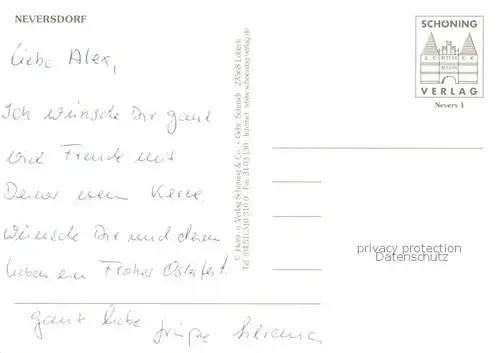 NEVERSDORF
Liebe Alex,
Ich wünsche Dir ganz
viel Freude mit
Deiner neuen
Wünsche Dir und deinen
lieben ein Frohes Osterfest.
ganz liebe Grüße
© Herst. u. Verlag Schöning & Co. + Gebr. Schmidt · 23568 Lübeck
Tel. (0451) 310 310 · Fax 31 03 130 · Internet: www.schoening-verlag.de
SCHÖNING
VERLAG
Nevers 1
privacy protection
Datenschutz